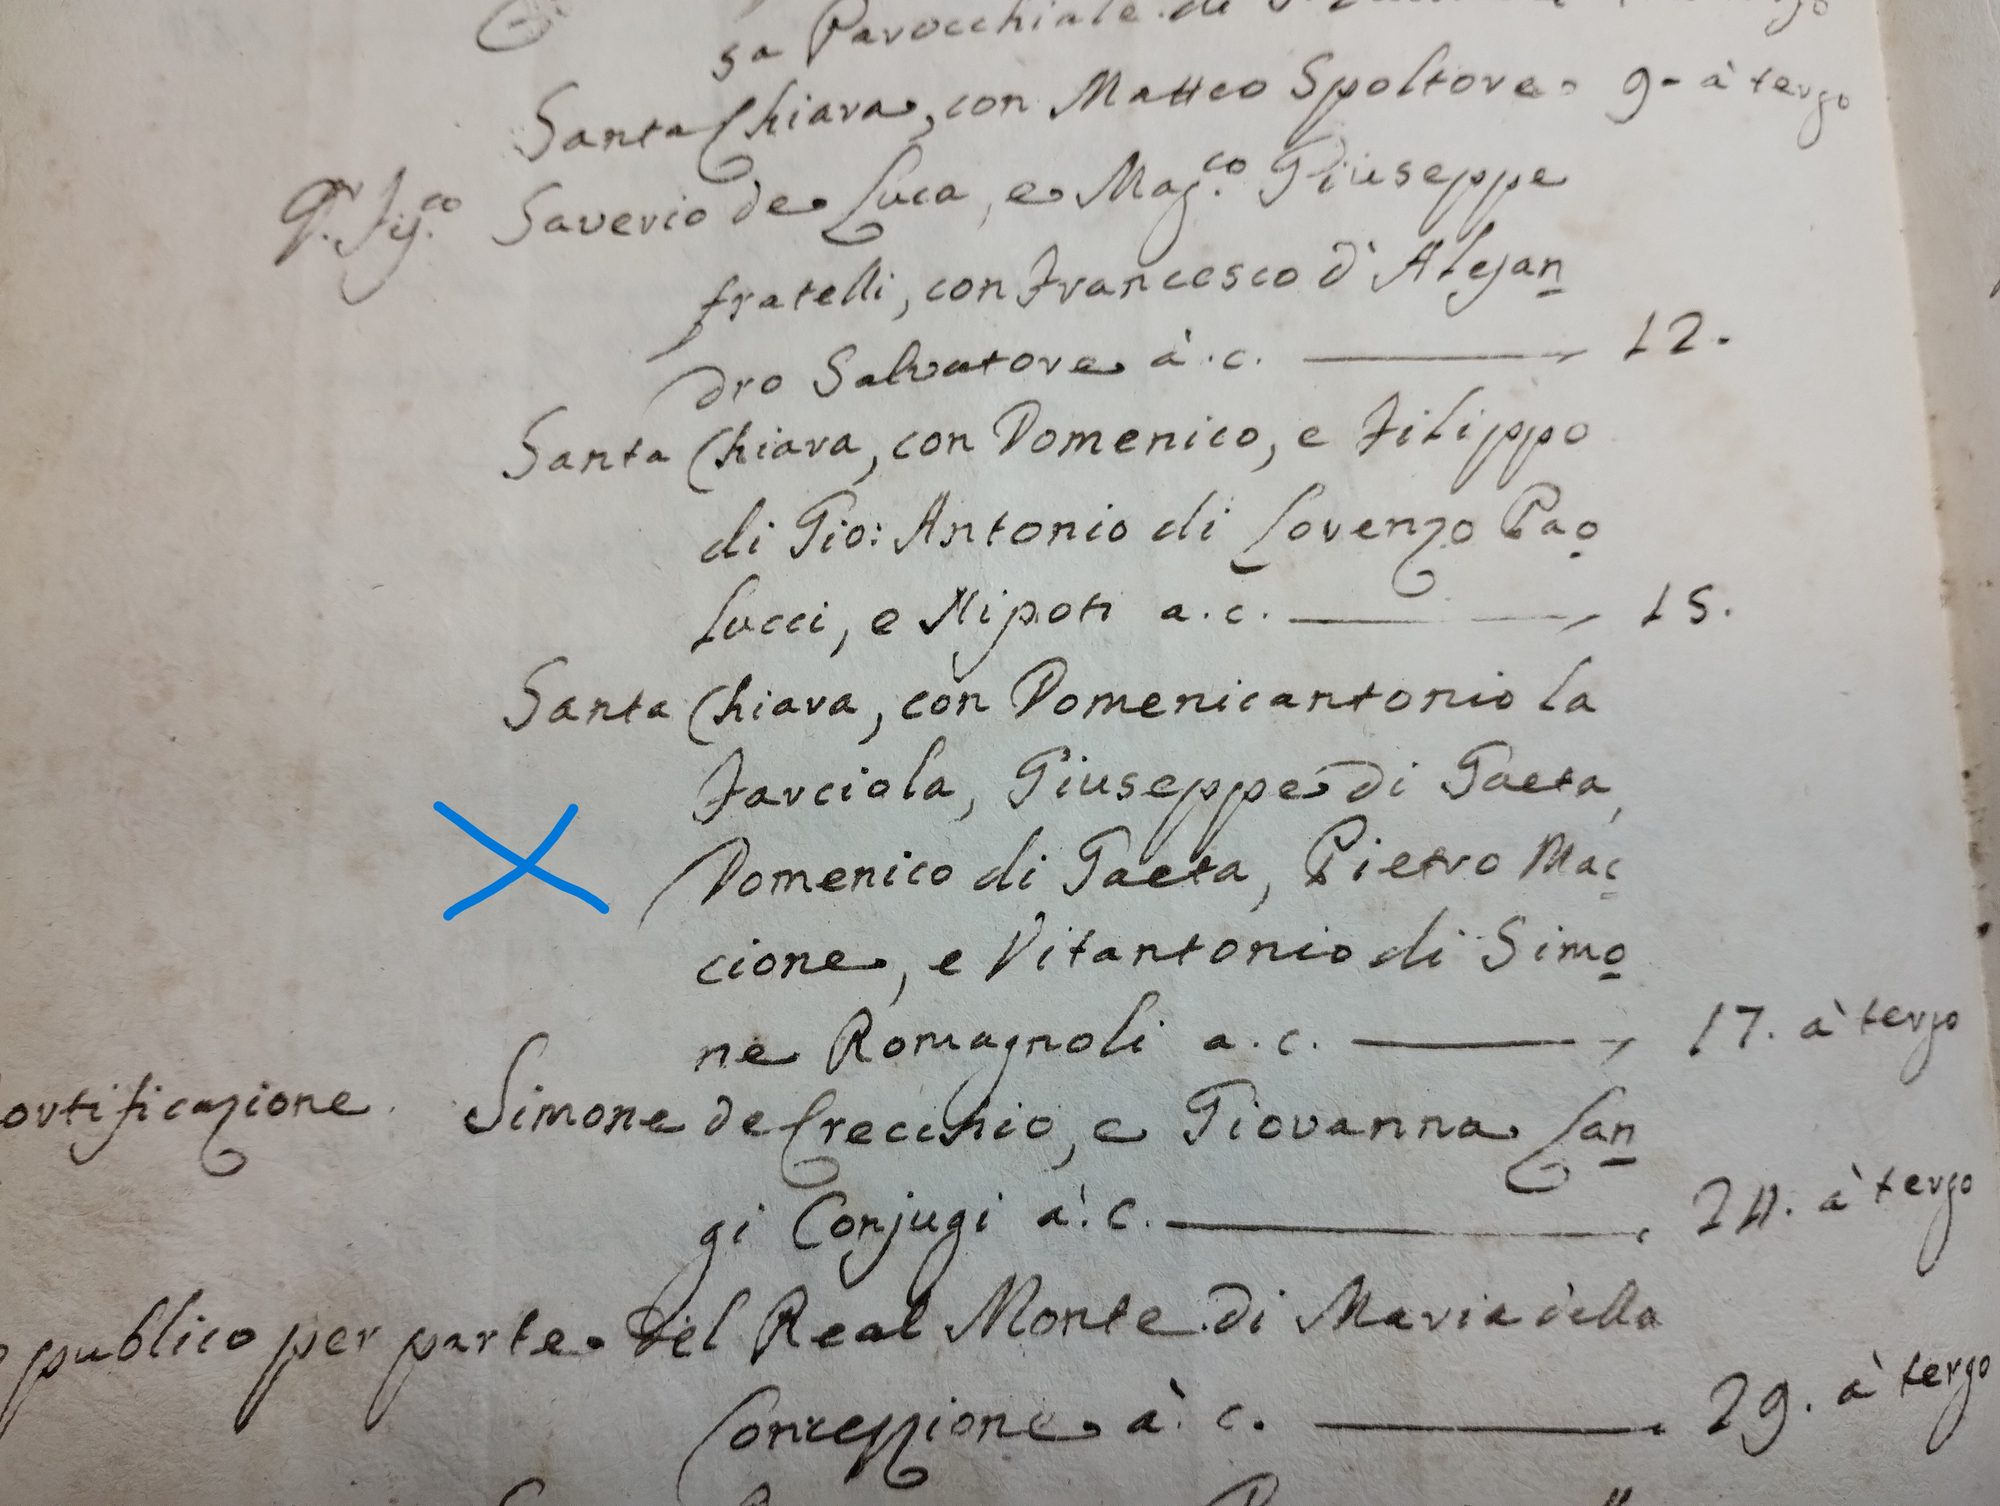 sa Parocchiale di
Santa Chiara, con Matteo Spoltore. 9- à tergo
Saverio de Luca, e Mag.co Giuseppe
fratelli, con Francesco d'Alejan
dro Salvatore à.c. 12.
Santa Chiara, con Domenico, e Filippo
di Gio: Antonio di Lorenzo Pao
lucci, e Nipoti a.c. 15.
Santa Chiara, con Domenicantonio la
Farciola, Giuseppe di Gaeta,
Domenico di Gaeta, Pietro Mac
cione, e Vitantonio di Simo
ne Romagnoli a.c. 17. à tergo
ortificazione. Simone de Crecchio, e Giovanna Lan
gi Conjugi à.c. 24. à tergo
publico per parte del Real Monte di Maria della
Concezzione à.c. 29. à tergo